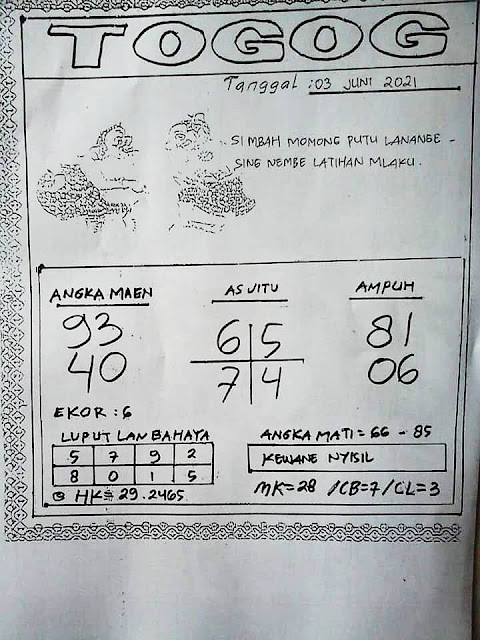 TOGOG
Tanggal : 03 JUNI 2021
SIMBAH MOMONG PUTU LANANGE -
SING NEMBE LATIHAN MLAKU.
ANGKA MAEN
93
40
EKOR : 6
AS JITU
6 5
7 4
AMPUH
81
06
LUPUT LAN BAHAYA
5 7 9 2
8 0 1 5
HK = 29.2465
ANGKA MATI = 66 - 85
KEWANE NYISIL
MK = 28 / CB = 7 / CL = 3